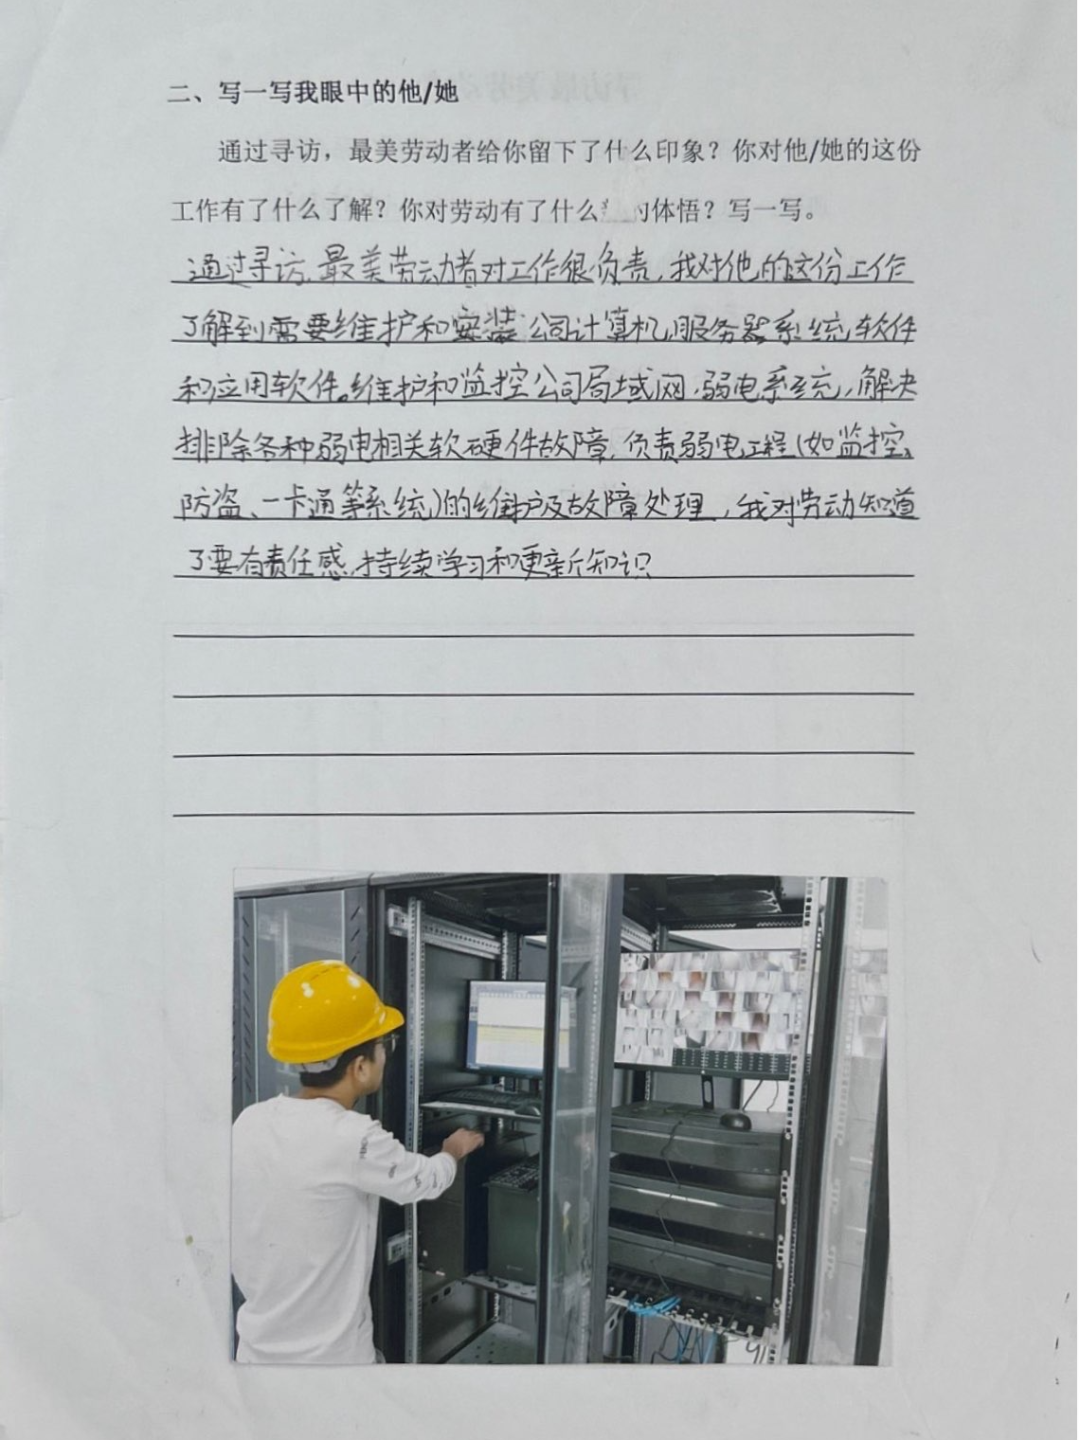 二、写一写我眼中的他/她
通过寻访，最美劳动者给你留下了什么印象？你对他/她的这份
工作有了什么了解？你对劳动有了什么 的体悟？写一写。
通过寻访,最美劳动者对工作很负责,我对他的这份工作
了解到需要维护和安装公司计算机,服务器系统,软件
和应用软件。维护和监控公司局域网,弱电系统,解决
排除各种弱电相关软硬件故障,负责弱电工程(如监控、
防盗、一卡通等系统)的维护及故障处理,我对劳动知道
了要有责任感,持续学习和更新知识